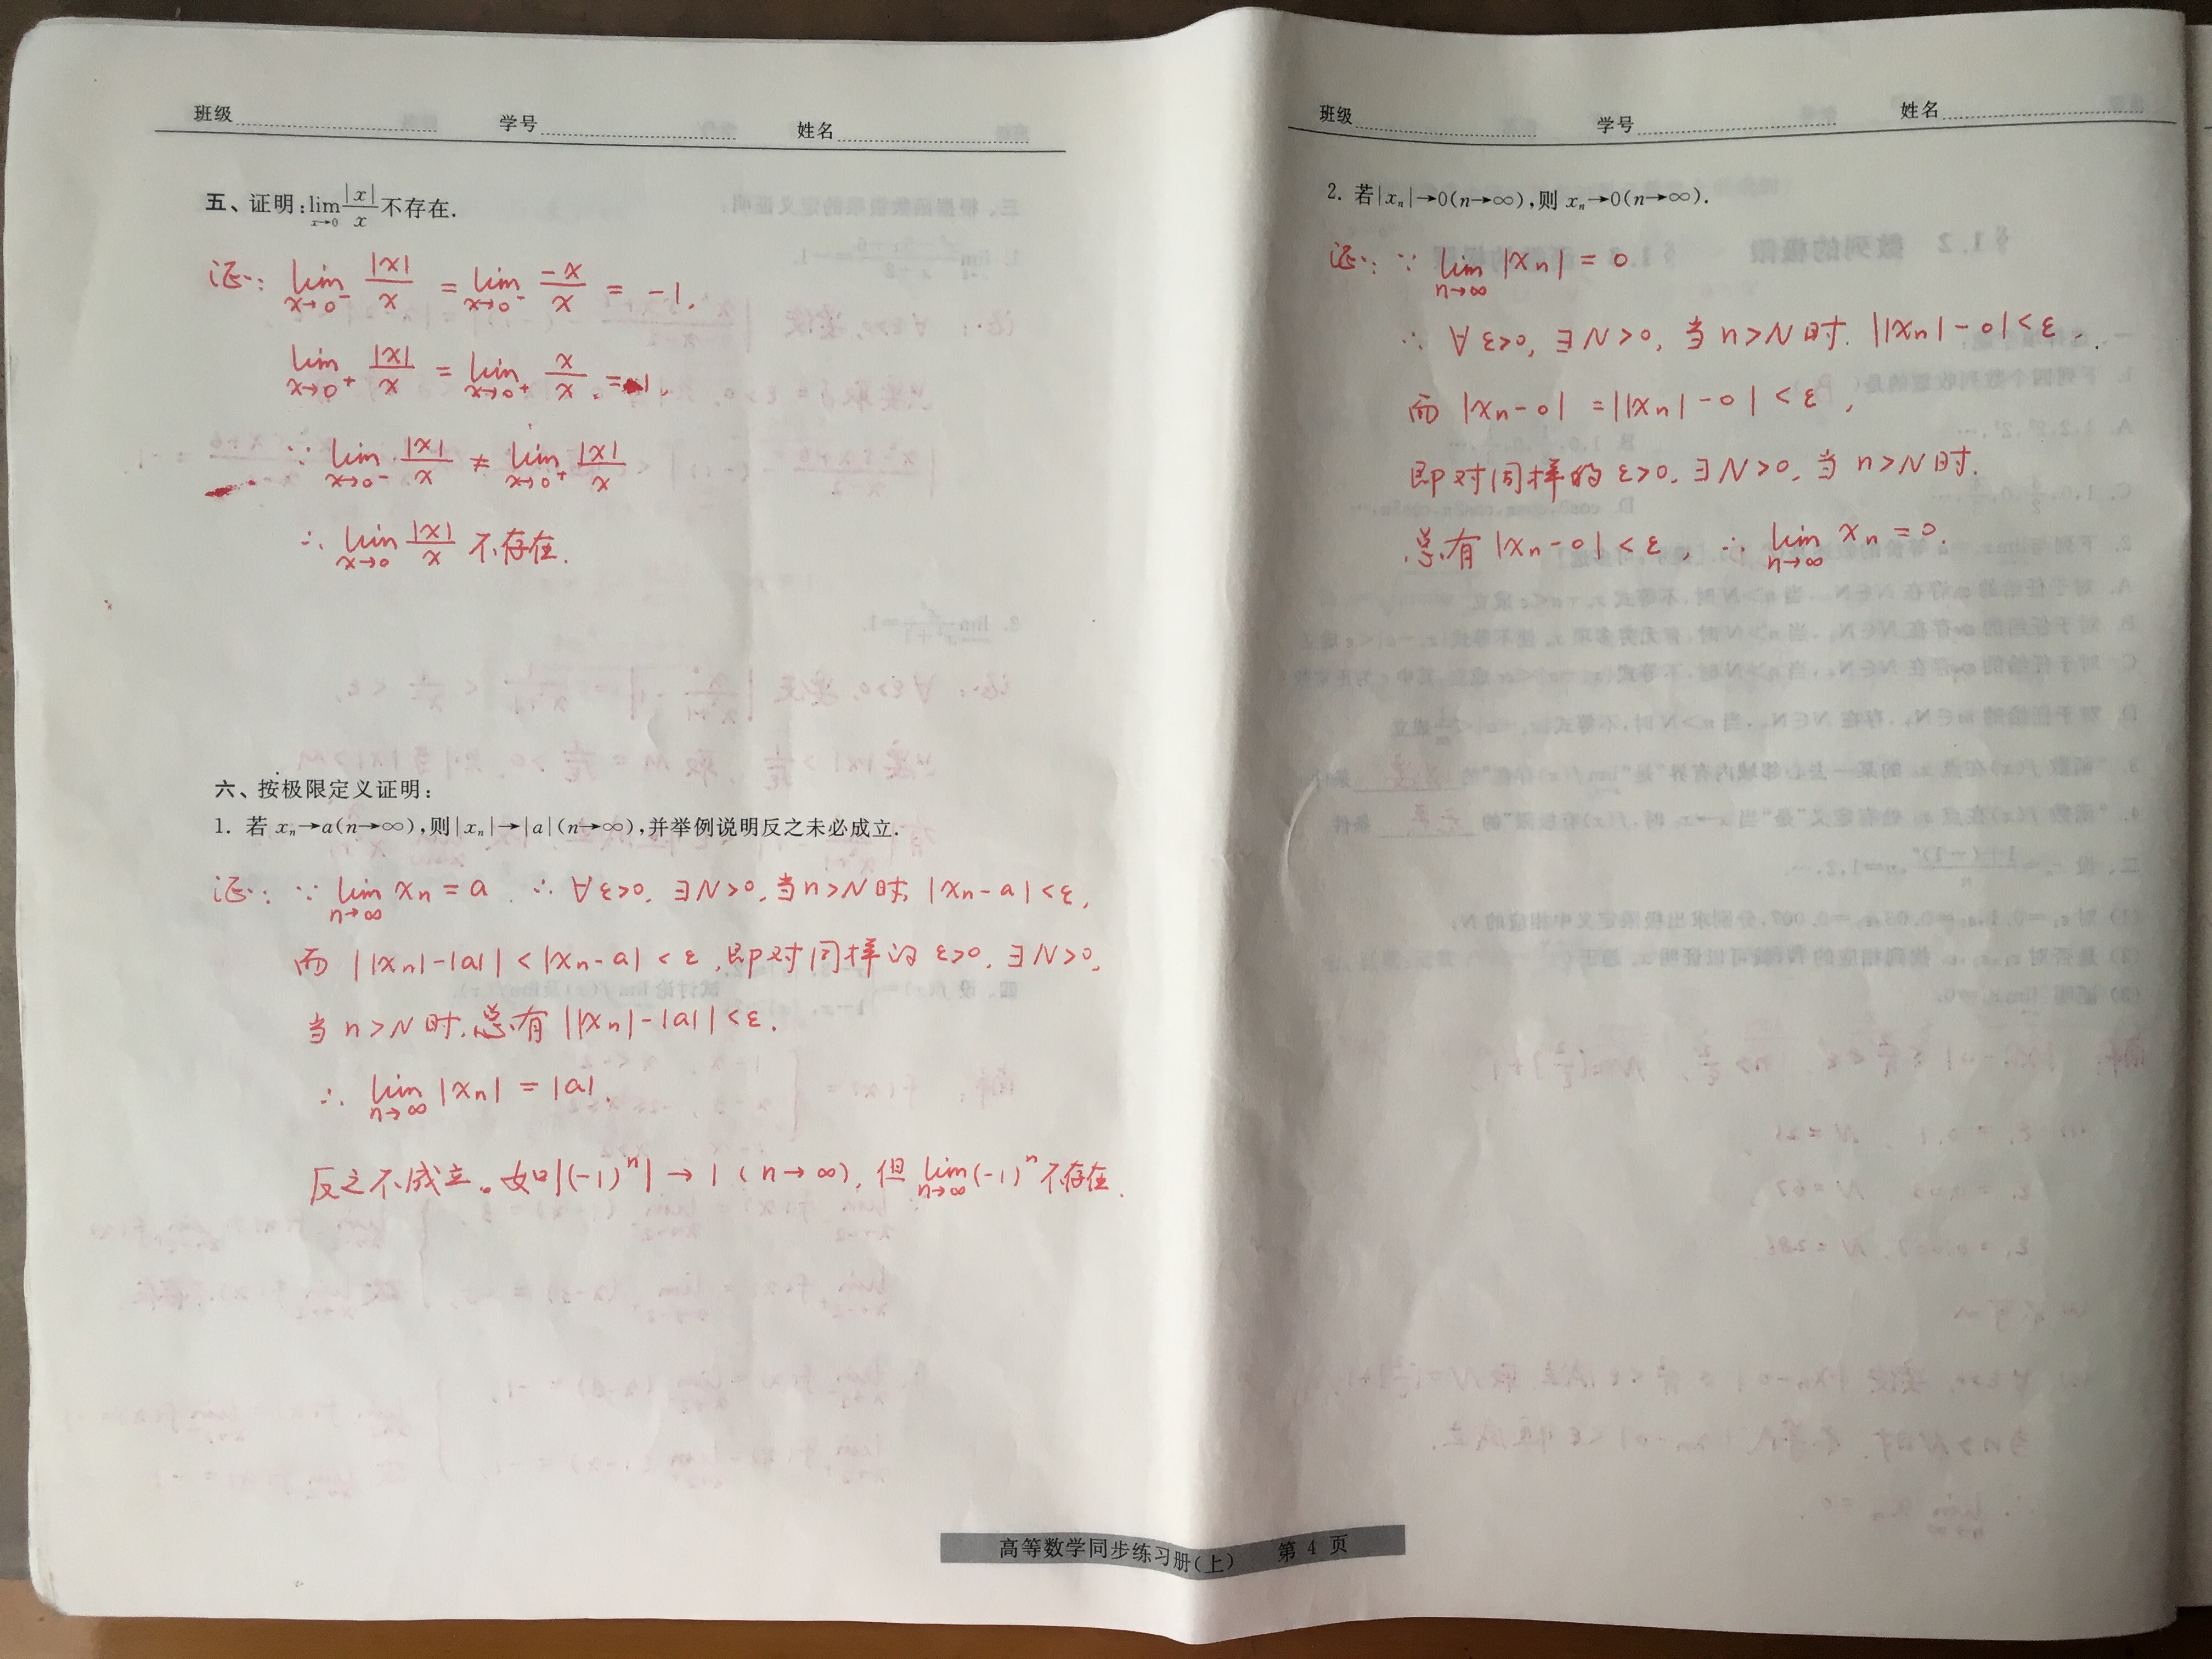 班级 学号 姓名
五、证明:lim_{x→0} |x|/x 不存在.
证: lim_{x→0⁻} |x|/x = lim_{x→0⁻} -x/x = -1.
lim_{x→0⁺} |x|/x = lim_{x→0⁺} x/x = 1.
∵ lim_{x→0⁻} |x|/x ≠ lim_{x→0⁺} |x|/x
∴ lim_{x→0} |x|/x 不存在.
六、按极限定义证明:
1. 若 xₙ→a(n→∞),则|xₙ|→|a|(n→∞),并举例说明反之未必成立.
证: ∵ lim_{n→∞} xₙ = a ∴ ∀ε>0, ∃N>0, 当n>N时, |xₙ-a|<ε,
而 ||xₙ|-|a|| < |xₙ-a| < ε, 即对同样的 ε>0, ∃N>0,
当 n>N 时, 总有 ||xₙ|-|a|| < ε.
∴ lim_{n→∞} |xₙ| = |a|.
反之不成立。如|(-1)ⁿ| → 1 (n→∞), 但 lim_{n→∞} (-1)ⁿ 不存在.
班级 学号 姓名
2. 若|xₙ|→0(n→∞),则 xₙ→0(n→∞).
证: ∵ lim_{n→∞} |xₙ| = 0
∴ ∀ε>0, ∃N>0, 当n>N时, ||xₙ|-0|<ε.
而 |xₙ-0| = ||xₙ|-0| < ε,
即对同样的 ε>0, ∃N>0, 当 n>N时.
总有 |xₙ-0|<ε, ∴ lim_{n→∞} xₙ = 0.
高等数学同步练习册(上) 第 4 页